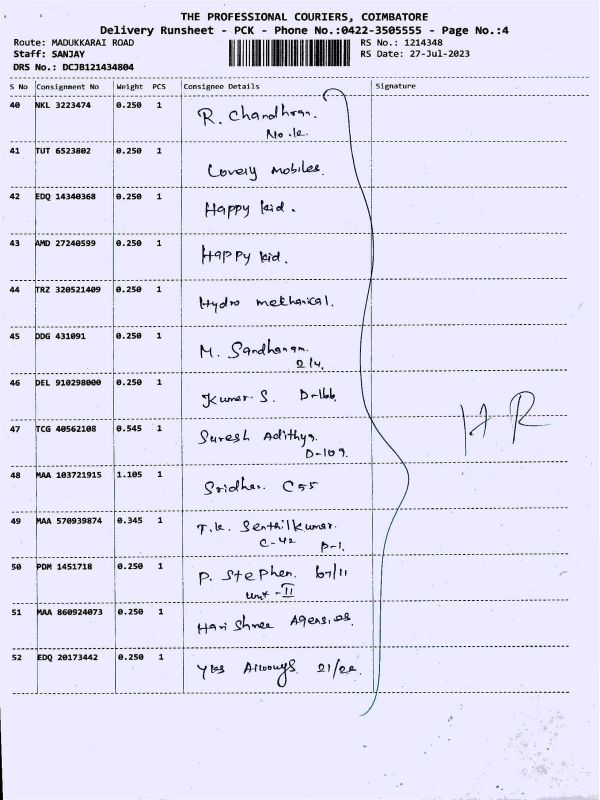 THE PROFESSIONAL COURIERS, COIMBATORE
Delivery Runsheet - PCK - Phone No.:0422-3505555 - Page No.:4
Route: MADUKKARAI ROAD
Staff: SANJAY
DRS No.: DCJB121434804
RS No.: 1214348
RS Date: 27-Jul-2023
S No Consignment No Weight PCS Consignee Details Signature
40 NKL 3223474 0.250 1 R. Chandhran.
41 TUT 6523802 0.250 1 Lovely mobiles.
42 EDQ 14340368 0.250 1 Happy kid.
43 AMD 27240599 0.250 1 Happy kid.
44 TRZ 320521409 0.250 1 Hydro mechanical.
45 DDG 431091 0.250 1 M. Sandhanam.
2/4.
46 DEL 910298000 0.250 1 Kumar. S. D-166
47 TCG 40562108 0.545 1 Suresh Adithya.
D-109.
48 MAA 103721915 1.105 1 Sridhar. C55
49 MAA 570939874 0.345 1 T.K. Senthilkumar.
C-42 P-1.
50 PDM 1451718 0.250 1 P. Stephen. 67/11
Unit - II
51 MAA 860924073 0.250 1 Hari Shree Agensies.
52 EDQ 20173442 0.250 1 21/22
HR